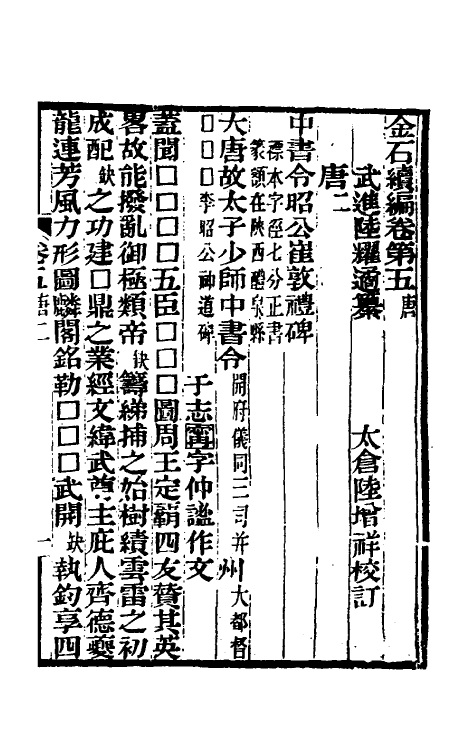 金石續編卷第五唐
武進陸耀遹纂
太倉陸增祥校訂
唐二
中書令昭公崔敦禮碑
標本字徑七分正書
篆額在陝西醴泉縣
大唐故太子少師中書令開府儀同三司并州大都督
□□□李昭公神道碑
于志甯字仲謐作文
蓋聞□□□□五臣□□□□圖周王定霸四友贊其英
畧故能撥亂御極類帝缺籌綈捕之始樹績雲雷之初
成配缺之功建□鼎之業經文緯武尊主庇人齊德夔
龍連芳風力形圖麟閣銘勒□□□武開缺執鈞享四
卷五唐二
一